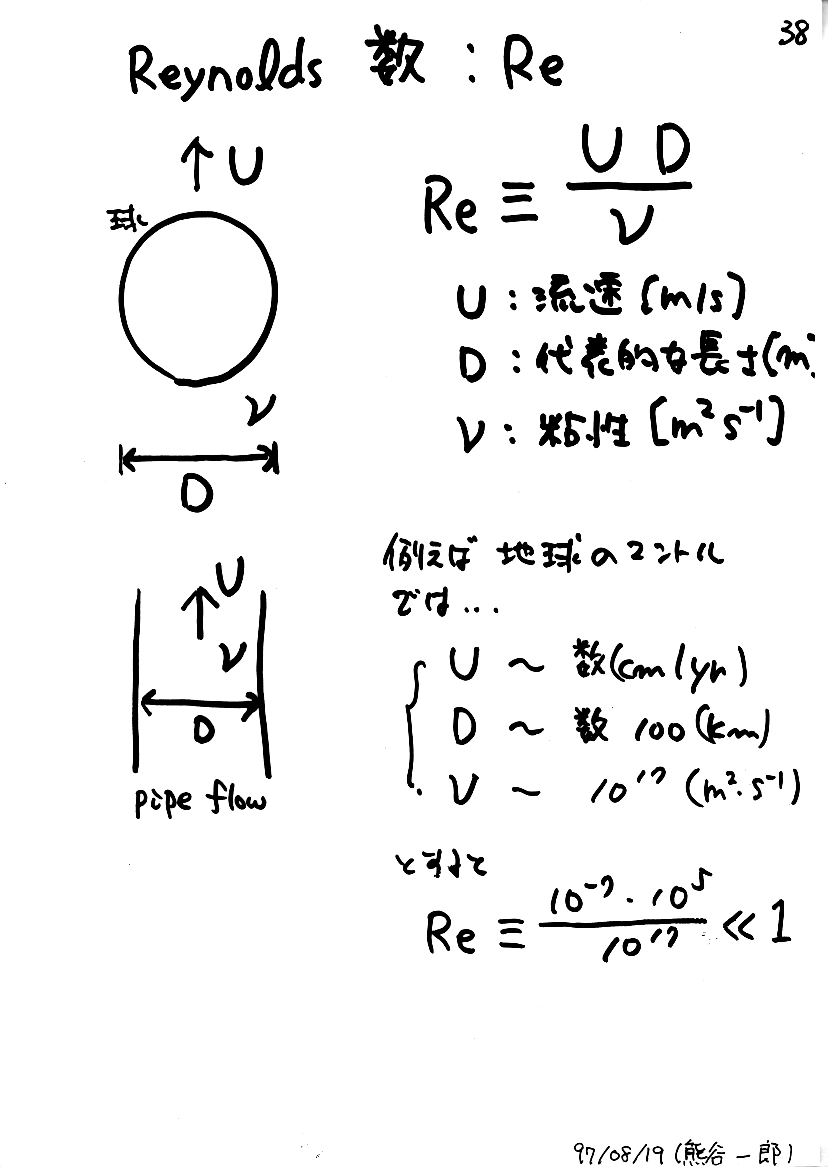 38
Reynolds 数 : Re
↑ U
球
ν
D
Re ≡ U D / ν
U : 流速 [m/s]
D : 代表的な長さ[m]
ν : 粘性 [m² s⁻¹]
U
ν
D
pipe flow
例えば 地球のマントル
では...
U ~ 数(cm/yr)
D ~ 数 100 (km)
ν ~ 10¹⁷ (m²·s⁻¹)
とすると
Re ≡ 10⁻⁷ · 10⁵ / 10¹⁷ ≪ 1
97/08/19 (熊谷 一郎)